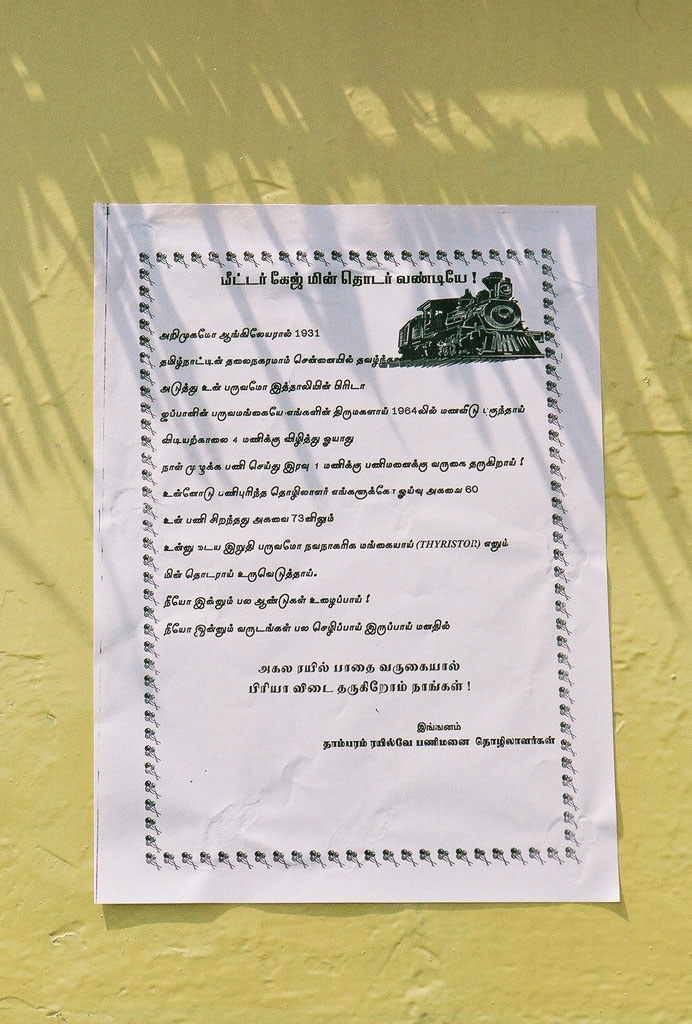 மீட்டர் கேஜ் மின் தொடர் வண்டியே !
அறிமுகமோ ஆங்கிலேயரால் 1931
தமிழ்நாட்டின் தலைநகரமாம் சென்னையில் தவழ்ந்த
அடுத்து உன் பருவமோ இத்தாலியின் பிரிடா
ஜப்பானின் பருவமங்கையே எங்களின் திருமகளாய் 1964லில் மணவீடு புகுந்தாய்
விடியற்காலை 4 மணிக்கு விழித்து ஓயாது
நாள் முழுக்க பணி செய்து இரவு 1 மணிக்கு பணிமனைக்கு வருகை தருகிறாய் !
உன்னோடு பணிபுரிந்த தொழிலாளர் எங்களுக்கோ ஓய்வு அகவை 60
உன் பணி சிறந்தது அகவை 73னிலும்
உன்னுடைய இறுதி பருவமோ நவநாகரிக மங்கையாய் (THYRISTOR) எனும்
மின் தொடராய் உருவெடுத்தாய்.
நீயோ இன்னும் பல ஆண்டுகள் உழைப்பாய் !
நீயோ இன்னும் வருடங்கள் பல செழிப்பாய் இருப்பாய் மனதில்
அகல ரயில் பாதை வருகையால்
பிரியா விடை தருகிறோம் நாங்கள் !
இங்ஙனம்
தாம்பரம் ரயில்வே பணிமனை தொழிலாளர்கள்